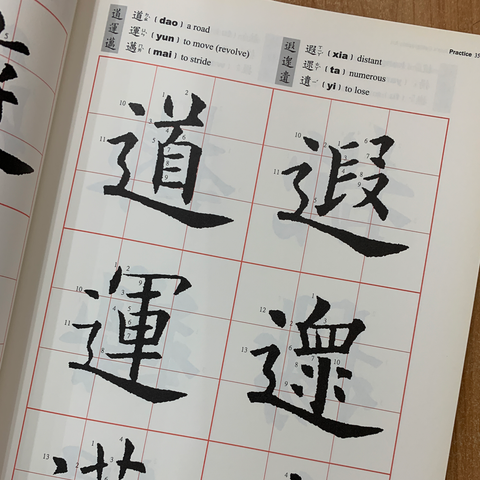 Practice 35
道 道 (dao) a road
運 運 (yun) to move (revolve)
邁 邁 (mai) to stride
遐 遐 (xia) distant
遝 遝 (ta) numerous
遺 遺 (yi) to lose
道 遐
運 遝